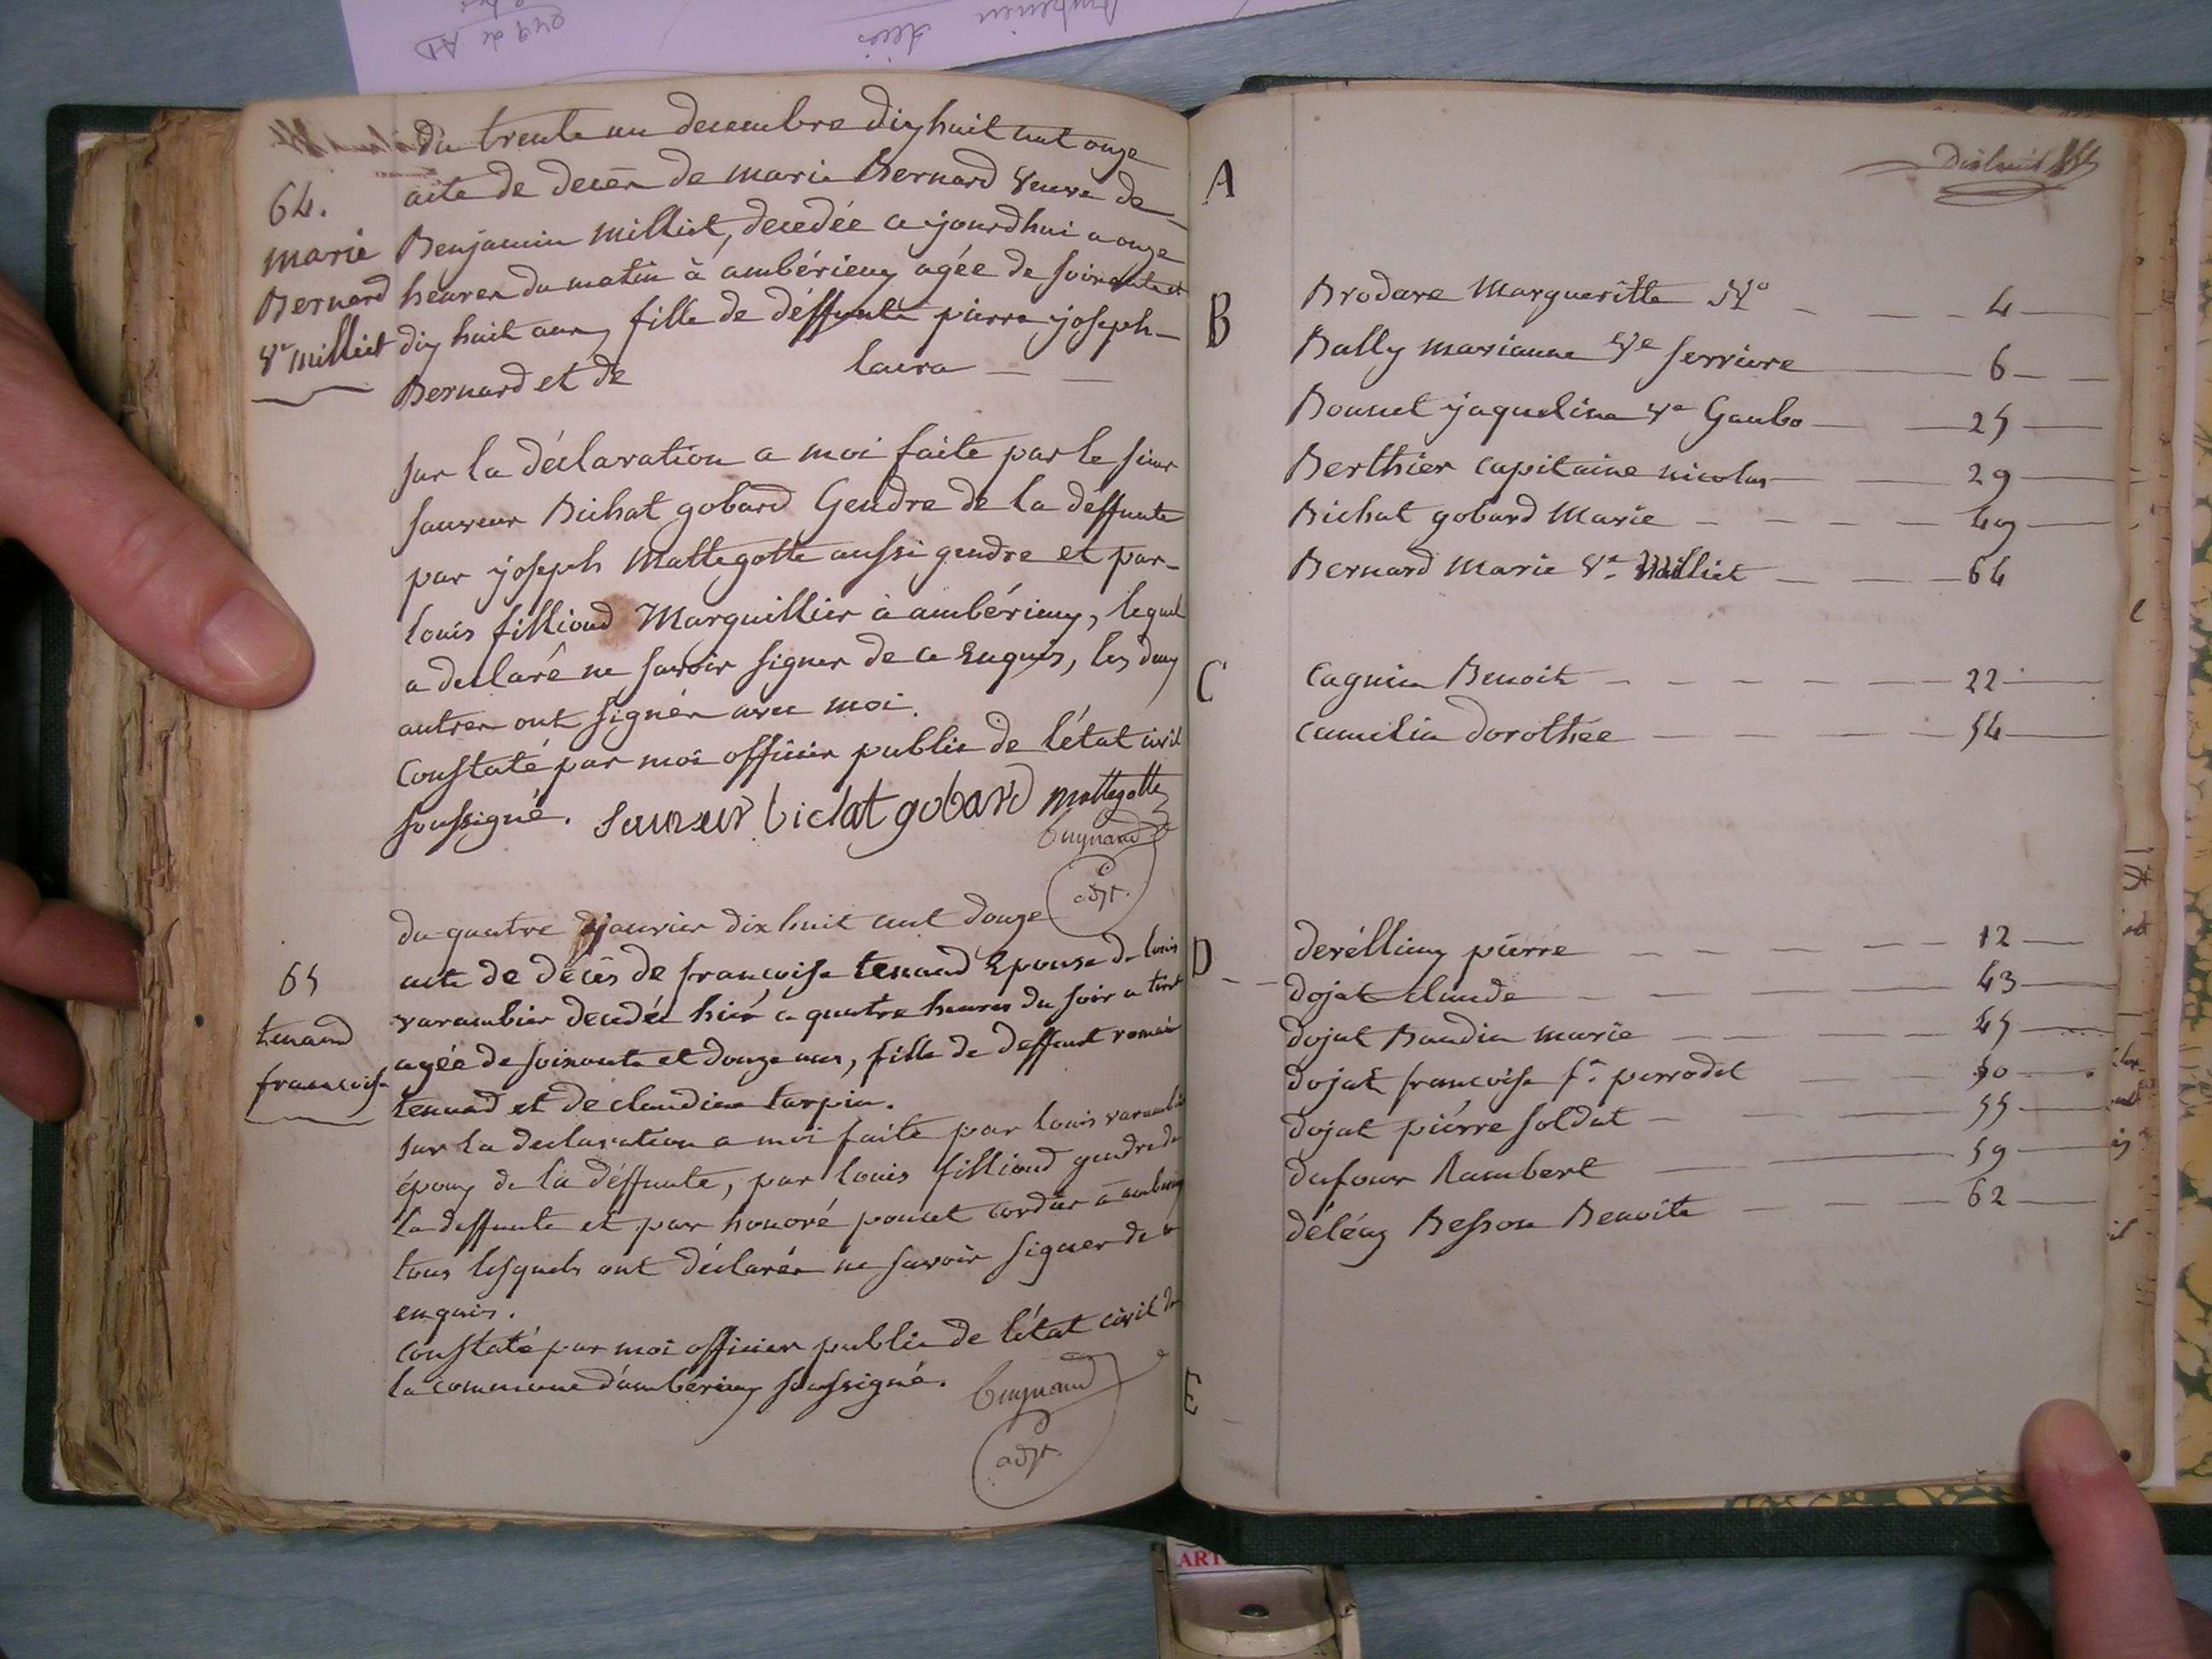 64.
marie
Bernard
Ve milliet
du trente un decembre dix huit cent onze
acte de decès de marie Bernard veuve de
Benjamin milliet, decedée cejourdhui a onze
heures du matin à ambérieux agée de soixante et
dix huit ans, fille de déffunte pierre joseph
Bernard et de laura
sur la déclaration a moi faite par le sieur
sauveur Bichat gobard Gendre de la déffunte
par joseph Mattegotte aussi gendre et par
louis filliond Marguillier à ambérieux, lequel
a declaré ne savoir signer de ce Enquis, les deux
autres ont signés avec moi.
Constaté par moi officier public de l'état civil
soussigné. sauveur bichat gobard mattegotte
Guynand
adjt.
65
tenand
francoise
du quatre janvier dix huit cent douze
acte de décès de francoise tenand Epouse de louis
varambier decedée hiér à quatre heures du soir a tiret
agée de soixante et douze ans, fille de deffunt romain
tenand et de claudine turpin.
sur la declaration a moi faite par louis varambier
époux de la déffunte, par louis filliond gendre de
la deffunte et par honoré poncet cordier à ambérieux
tous lesquels ont déclarés ne savoir signer de ce
enquis.
Constaté par moi officier public de l'état civil de
la commune d'ambérieux soussigné.
Guynand
adjt.
A
B
Brodare Margueritte No 4
Bally marianne Ve serriere 6
Bonnet jaqueline ve Gaubo 25
Berthier capitaine nicolas 29
Bichat gobard Marie 49
Bernard Marie Ve Milliet 64
C
Cagnin Benoit 22
camelin dorothée 54
D
derélliux pierre 12
dojat claude 43
dojat Baudin marie 45
dojat francoise fe perrodet 50
dojat piérre soldat 55
dufour Rambert 59
déléaz Besson Benoite 62
E
ART